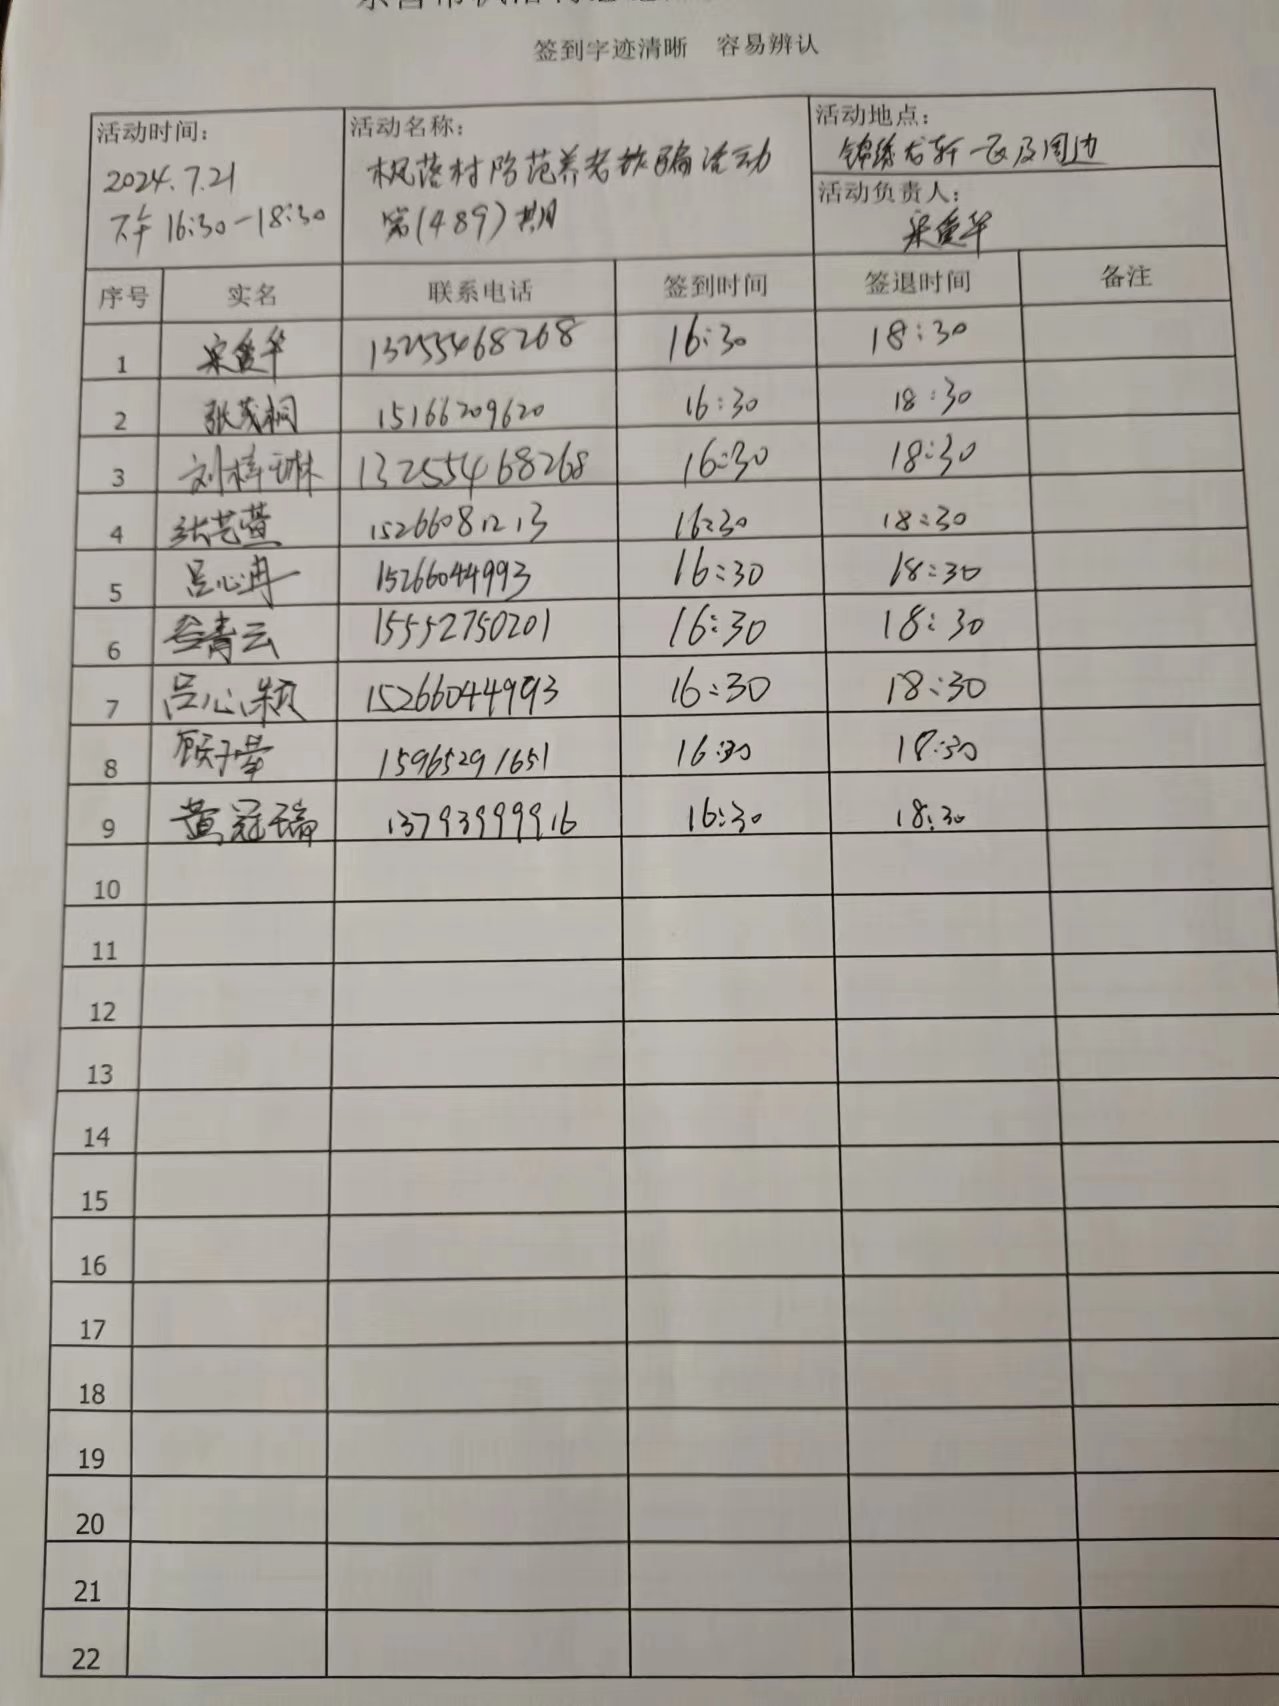 签到字迹清晰 容易辨认
活动时间：
2024.7.21
下午 16:30-18:30
活动名称：
枫落村防范养老诈骗活动
第(489)期
活动地点：
锦绣龙轩一区及周边
活动负责人：
宋爱华
序号 实名 联系电话 签到时间 签退时间 备注
1 宋爱华 13255468268 16:30 18:30
2 张茂桐 15166209620 16:30 18:30
3 刘梓琳 13255468268 16:30 18:30
4 张艺萱 15266081213 16:30 18:30
5 吕心冉 15266044993 16:30 18:30
6 青云 15552750201 16:30 18:30
7 吕心颖 15266044993 16:30 18:30
8 顾子 15965291651 16:30 18:30
9 黄冠瑞 13793999916 16:30 18:30
10
11
12
13
14
15
16
17
18
19
20
21
22